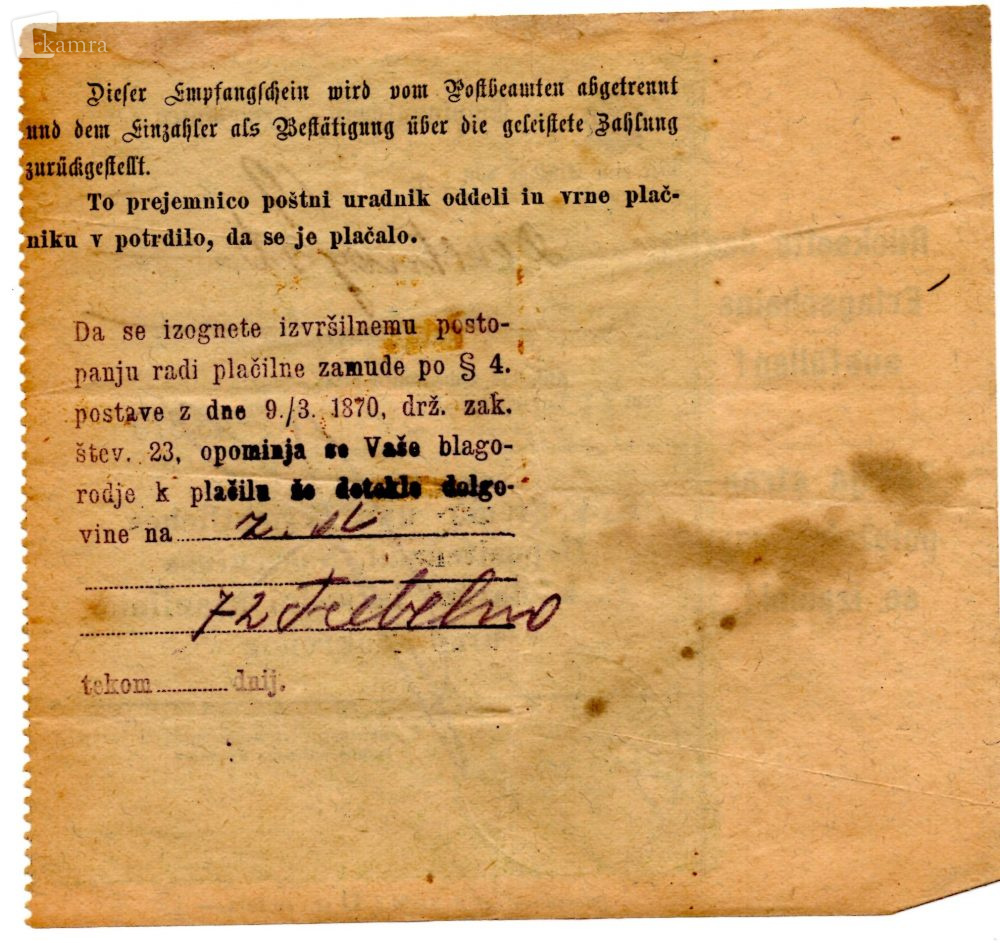 kamra
Dieser Empfangschein wird vom Postbeamten abgetrennt
und dem Einzahler als Bestätigung über die geleistete Zahlung
zurückgestellt.
To prejemnico poštni uradnik oddeli in vrne plač-
niku v potrdilo, da se je plačalo.
Da se izognete izvršilnemu posto-
panju radi plačilne zamude po § 4.
postave z dne 9./3. 1870, drž. zak.
štev. 23, opominja se Vaše blago-
rodje k plačilu že dotekle dolgo-
vine na
72 Trebelno
tekom ............ dnij.